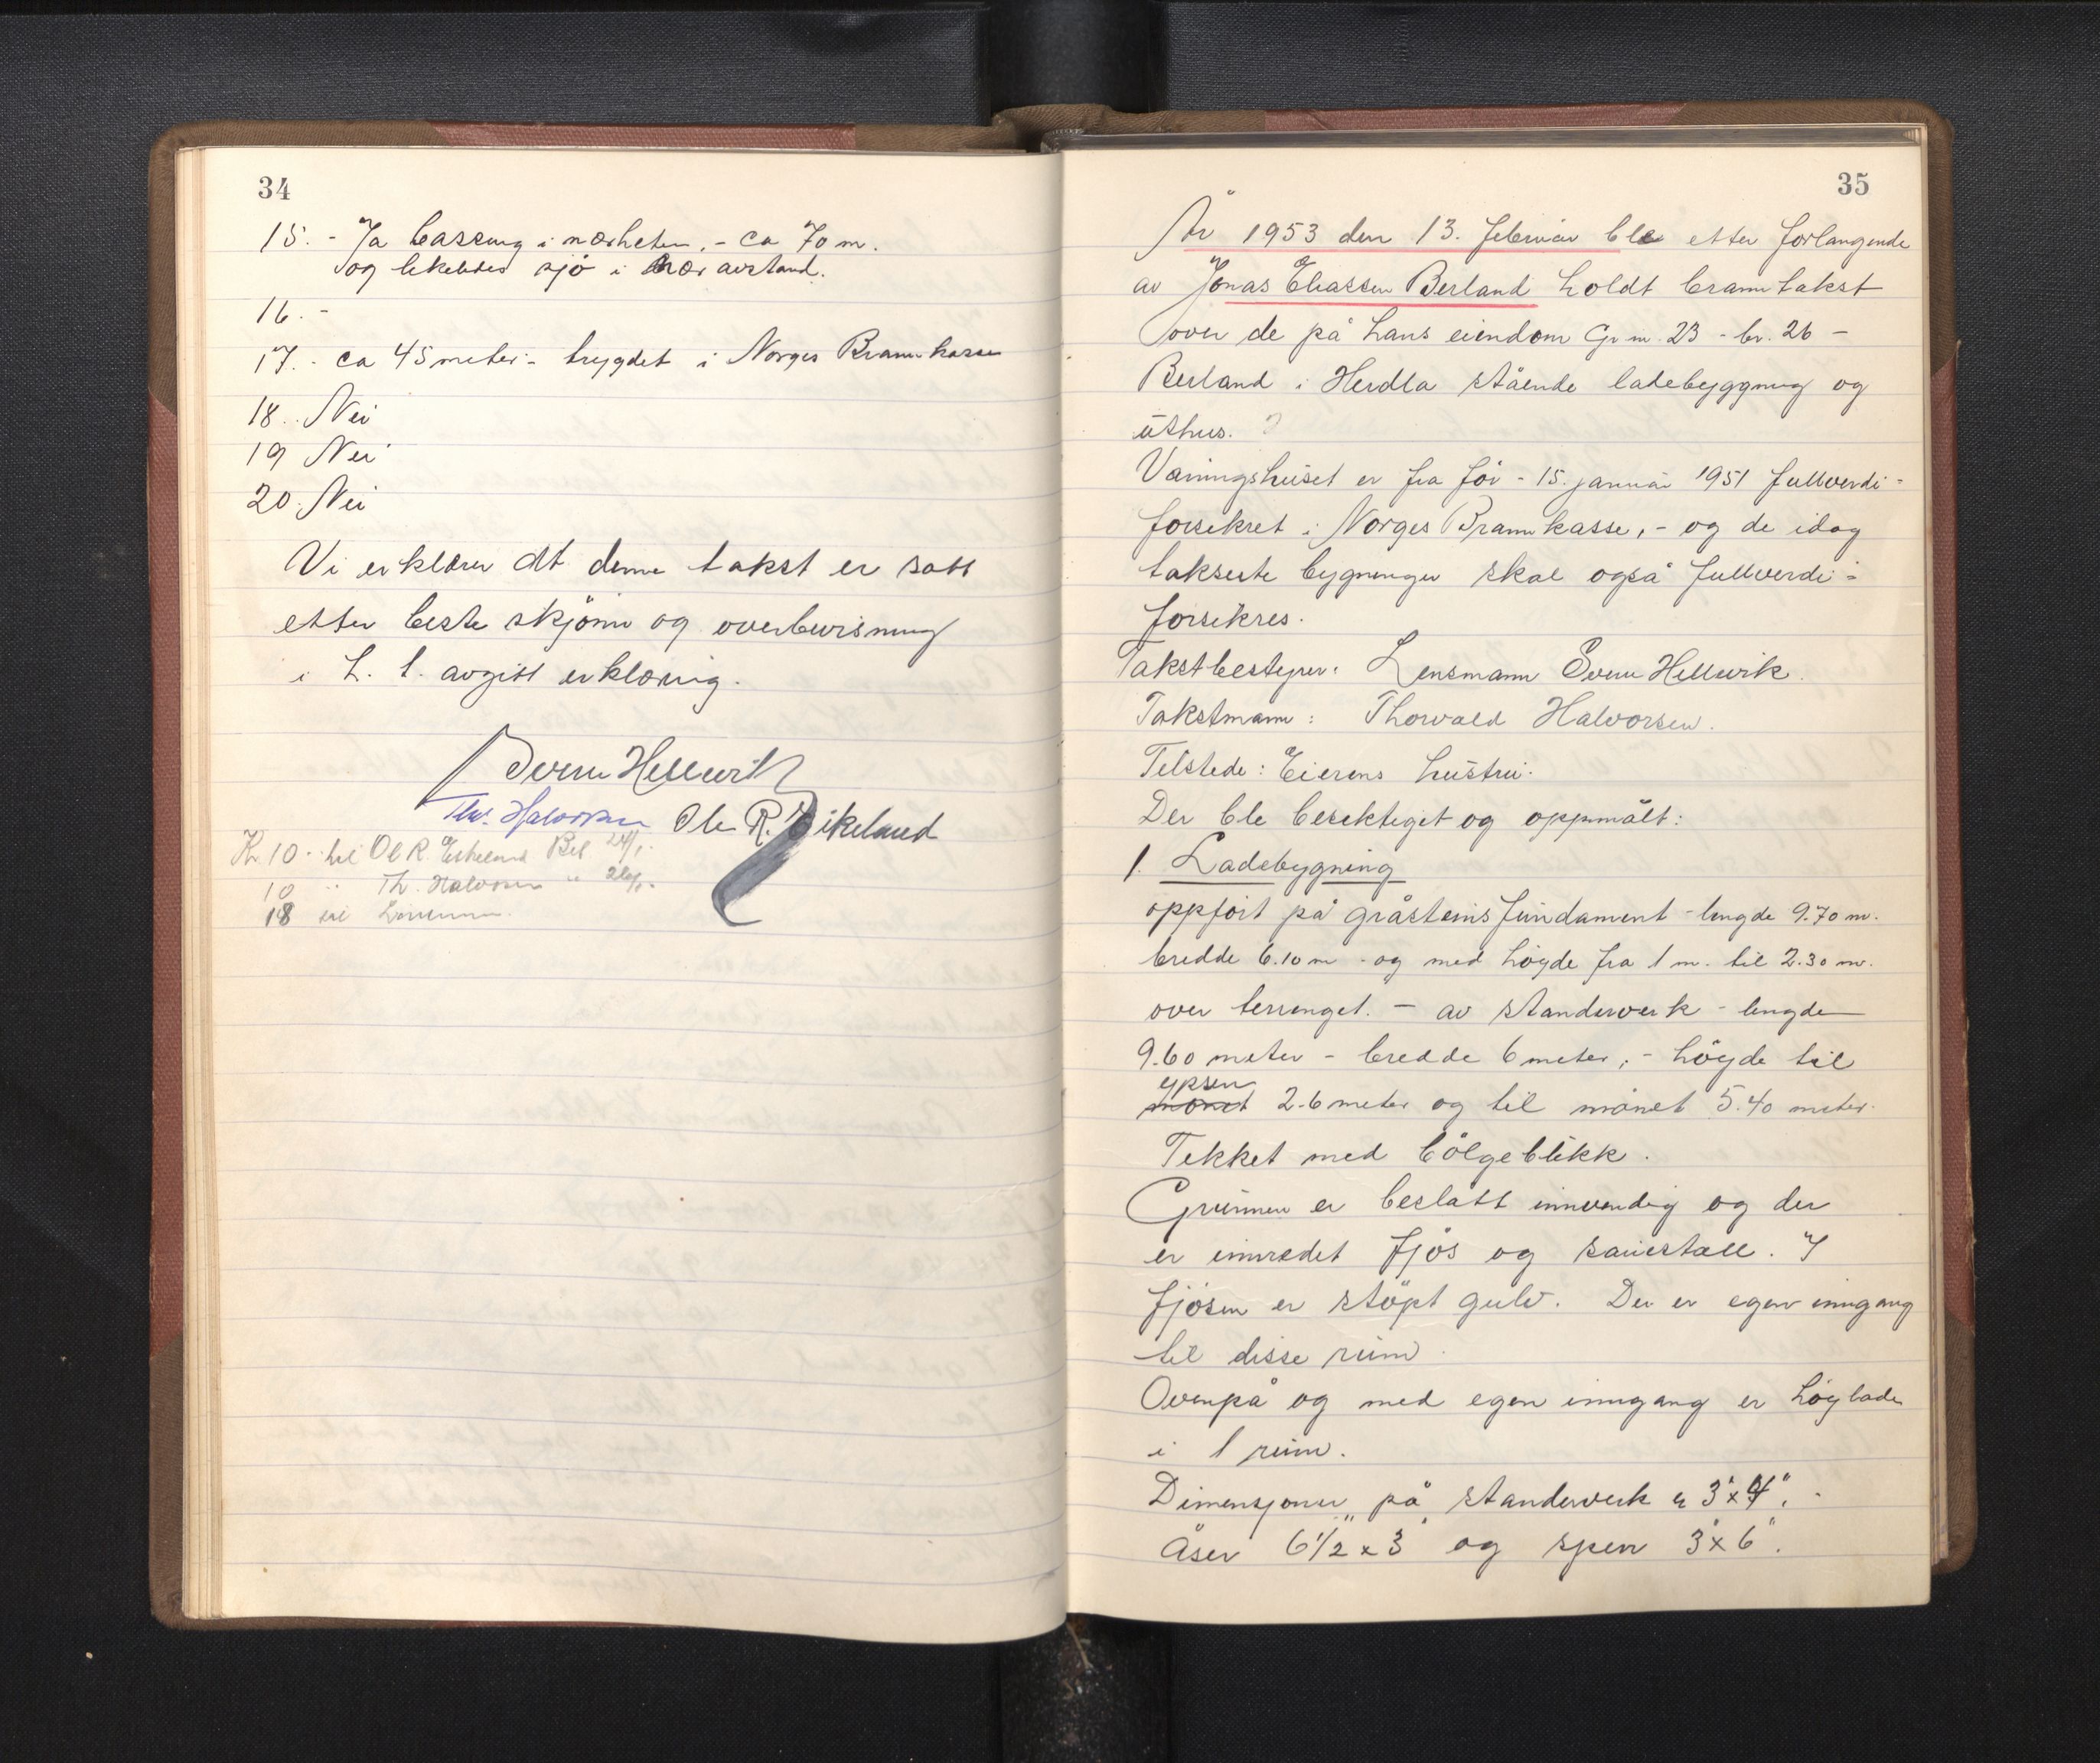 34
15. - Ja basseng i nærheten, - ca 70 m.
og likeledes sjö i nær avstand.
16. -
17. - ca 45 meter - trygdet i Norges Brannkasse
18. Nei
19 Nei
20. Nei
Vi erklærer at denne takst er satt
etter beste skjönn og overbevisning
i h. t. avgitt erklæring.
Sverre Hellevik
Thv. Halvorsen Ole R. Eikeland
Kr. 10.- til Ol R. Eikeland Bet 24/1.
10 " Th. Halvorsen "
18 til
35
År 1953 den 13. februar ble etter forlangende
av Jonas Eliassen Berland holdt branntakst
over de på hans eiendom Gr. nr. 23 - br. 26 -
Berland i Herdla stående ladebyggning og
uthus.
Våningshuset er fra för - 15. januar 1951 fullverdi-
forsikret i Norges Brannkasse, - og de idag
takserte bygninger skal også fullverdi-
forsikres.
Takstbestyrer: Lensmann Sverre Hellevik.
Takstmann: Thorvald Halvorsen.
Tilstede: Eierens hustru.
Der ble besiktiget og oppmålt:
1. Ladebygning
oppfört på gråsteinsfundament - lengde 9.70 m.
bredde 6.10 m - og med höyde fra 1 m. til 2.30 m.
over terrenget. - av standerverk - lengde
9.60 meter - bredde 6 meter, - höyde til
gpsen
mönet 2.6 meter og til mönet 5.40 meter.
Tekket med bölgeblikk.
Grunnen er beslått innvendig og der
er innredet fjös og sauestall. I
fjösen er stöpt gulv. Der er egen inngang
til disse rum.
Ovenpå og med egen inngang er höylade
i 1 rum.
Dimensjoner på standerverk er 3"x4". -
Åser 6 1/2"x3" og sperr 3"x6".